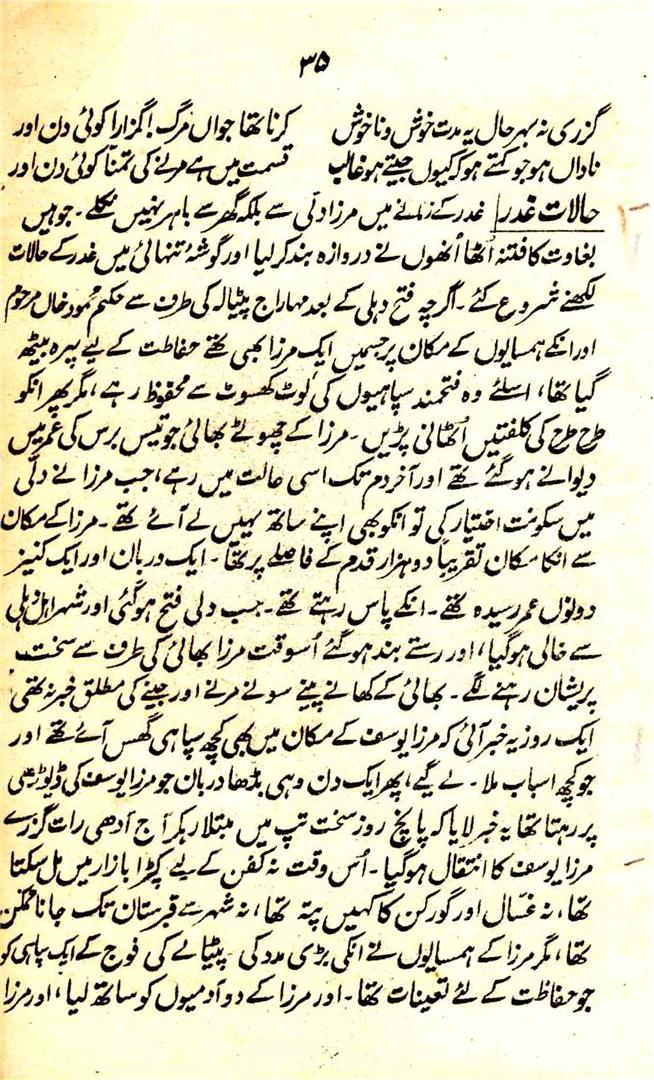 ۳۵
گزری نہ بہر حال یہ مدت خوش و ناخوش کرنا تھا جواں مرگ! گزارا کوئی دن اور
ناداں ہو جو کہتے ہو کہ کیوں جیتے ہو غالب قسمت میں ہے مرنے کی تمنا کوئی دن اور
حالات غدر غدر کے زمانے میں مرزا دلی سے بلکہ گھر سے باہر نہیں نکلے۔ جوہیں
بغاوت کا فتنہ اُٹھا اُنھوں نے دروازہ بند کر لیا اور گوشۂ تنہائی میں غدر کے حالات
لکھنے شروع کئے۔ اگرچہ فتح دہلی کے بعد مہاراج پٹیالہ کی طرف سے حکیم محمود خاں مرحوم
اور انکے ہمسایوں کے مکان پر جسمیں ایک مرزا بھی تھے حفاظت کے لیے پہرہ بیٹھ
گیا تھا، اسلئے وہ فتحمند سپاہیوں کی لُوٹ کھسوٹ سے محفوظ رہے، مگر پھر انکو
طرح طرح کی کلفتیں اُٹھانی پڑیں۔ مرزا کے چھوٹے بھائی جو تیس برس کی عمر میں
دیوانے ہو گئے تھے اور آخر دم تک اسی حالت میں رہے، جب مرزا نے دلّی
میں سکونت اختیار کی تو انکو بھی اپنے ساتھ یہیں لے آئے تھے۔ مرزا کے مکان
سے انکا مکان تقریباً دو ہزار قدم کے فاصلے پر تھا۔ ایک دربان اور ایک کنیز
دونوں عمر رسیدہ تھے۔ انکے پاس رہتے تھے۔ جب دلی فتح ہو گئی اور شہر اہل دہلی
سے خالی ہو گیا، اور رستے بند ہو گئے اُسوقت مرزا بھائی کی طرف سے سخت
پریشان رہنے لگے۔ بھائی کے کھانے پینے سونے مرنے اور جینے کی مطلق خبر نہ تھی
ایک روز یہ خبر آئی کہ مرزا یوسف کے مکان میں بھی کچھ سپاہی گھس آئے تھے اور
جو کچھ اسباب ملا۔ لے گیے، پھر ایک دن وہی بڈھا دربان جو مرزا یوسف کی ڈیوڑھی
پر رہتا تھا یہ خبر لایا کہ پانچ روز سخت تپ میں مبتلا رہکر آج آدھی رات گزرے
مرزا یوسف کا انتقال ہو گیا۔ اُس وقت نہ کفن کے لیے کپڑا بازار میں مل سکتا
تھا، نہ غسّال اور گورکن کا کہیں پتہ تھا، نہ شہر سے قبرستان تک جانا ممکن
تھا، مگر مرزا کے ہمسایوں نے انکی بڑی مدد کی۔ پٹیالے کی فوج کے ایک سپاہی کو
جو حفاظت کے لئے تعینات تھا۔ اور مرزا کے دو آدمیوں کو ساتھ لیا، اور مرزا